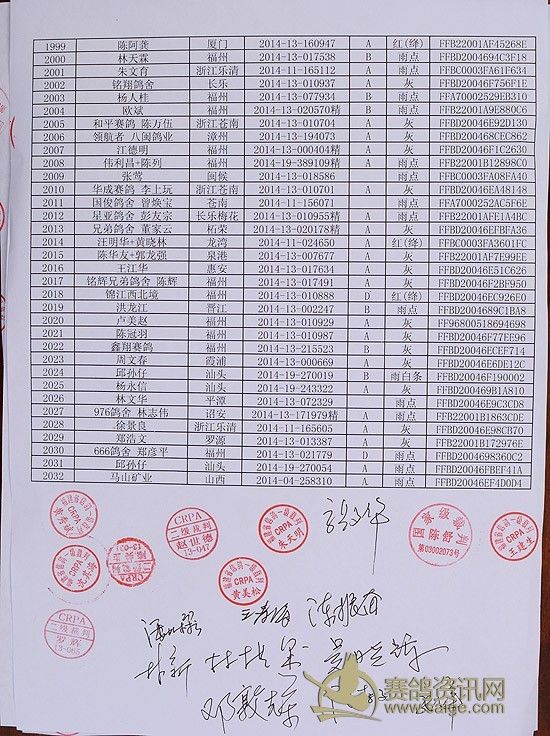 1999 陈阿龚 厦门 2014-13-160947 A 红(绛) FFB22001AF45268E
2000 林天霖 福州 2014-13-017538 B 雨点 FFBD2004694C3F18
2001 朱文育 浙江乐清 2014-11-165112 A 雨点 FFBC0003FA61F634
2002 铭翔鸽舍 长乐 2014-13-010937 A 灰 FFBD20046F756F1E
2003 杨人桂 福州 2014-13-077934 B 雨点 FFA70002529EB310
2004 欧斌 福州 2014-13-020570精 A 雨点 FFB22001A9E880C6
2005 和平赛鸽 陈万伍 浙江苍南 2014-13-010704 A 灰 FFBD20046E92D130
2006 领航者 八闽鸽业 漳州 2014-13-194073 A 灰 FFBD200468CEC862
2007 江德明 福州 2014-13-000404精 A 灰 FFBD20046F1C2630
2008 伟利昌+陈列 福州 2014-19-389109精 A 雨点 FFB22001B12898C0
2009 张莺 闽候 2014-13-018586 雨点 FFBC0003FA08FA40
2010 华成赛鸽 李上玩 浙江苍南 2014-13-010701 A 灰 FFBD20046EA48148
2011 国俊鸽舍 曾焕宝 苍南 2014-11-156071 雨点 FFA7000252AC5F6E
2012 星亚鸽舍 彭友宗 长乐梅花 2014-13-010955精 A 雨点 FFB22001AFE1A4BC
2013 兄弟鸽舍 董家云 柘荣 2014-13-020178精 A 灰 FFBD20046EFBFA36
2014 汪明华+黄晓林 龙湾 2014-11-024650 A 红(绛) FFBC0003FA3601FC
2015 陈华友+郭龙强 泉港 2014-13-007677 A 灰 FFB22001AF7E99EE
2016 王江华 惠安 2014-13-017634 A 灰 FFBD20046E51C626
2017 铭辉兄弟鸽舍 陈辉 福州 2014-13-017491 A 灰 FFBD20046F2BF950
2018 锦江西北境 福州 2014-13-010888 D 红(绛) FFBD20046EC926E0
2019 洪龙江 晋江 2014-13-002247 B 雨点 FFBD2004689C1BA8
2020 卢美赵 福州 2014-13-010929 A 灰 FF96800518694698
2021 陈冠羽 福州 2014-13-010987 A 灰 FFBD20046F77EE96
2022 鑫翔赛鸽 福州 2014-13-215523 B 灰 FFBD20046ECEF714
2023 周文春 霞浦 2014-13-000669 A 灰 FFBD20046E6DE12C
2024 邱孙仔 汕头 2014-19-270019 B 雨白条 FFBD20046F190002
2025 杨永信 汕头 2014-19-243322 A 灰 FFBD200469B1A810
2026 林文华 平潭 2014-13-072329 雨点 FFBD20046E9C3CD8
2027 976鸽舍 林志伟 诏安 2014-13-171979精 A 雨点 FFB22001B1863CDE
2028 徐景良 浙江乐清 2014-11-165605 A 灰 FFBD20046E98CB70
2029 郑浩文 罗源 2014-13-013387 A 灰 FFB22001B172976E
2030 666鸽舍 郑彦平 福州 2014-13-021779 D 雨点 FFBD2004698360C2
2031 邱孙仔 汕头 2014-19-270054 A 雨点 FFBD20046FBEF41A
2032 马山矿业 山西 2014-04-258310 A 雨点 FFBD20046EF4D0D4
CRPA
CRPA
二级裁判
赵世德
13-047
CRPA
朱天明
等级裁判
国际舒
第03002073号
CRPA
王建生
CRPA
CRPA
黄美松
CRPA
二级裁判
13-065
邓敦东
赛鸽资讯网
www.saige.com